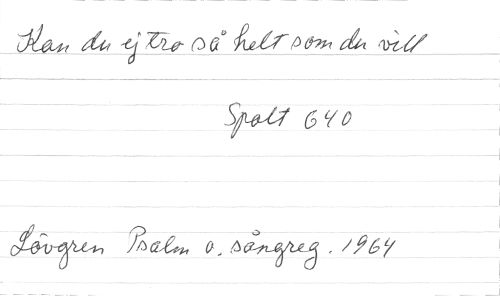 Kan du ej tro så helt som du vill
Spalt 640
Lövgren Psalm o. sångreg. 1964